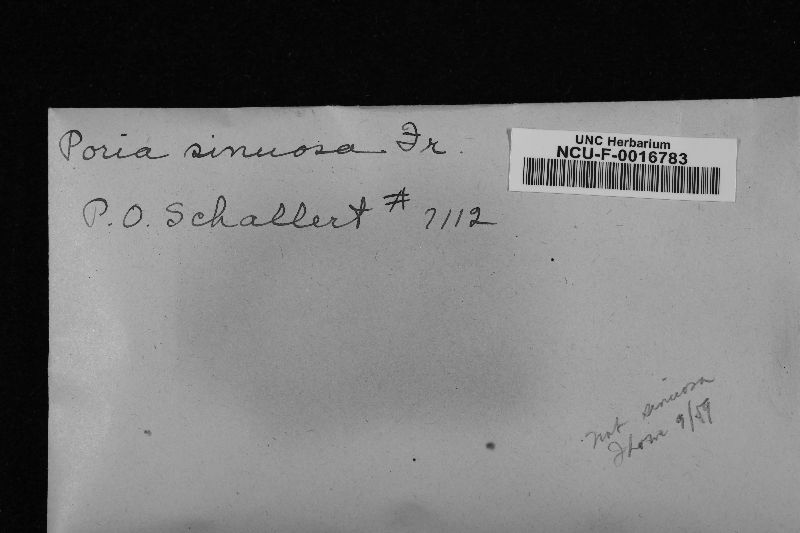 Poria sinuosa Fr.
UNC Herbarium
NCU-F-0016783
P. O. Schallert # 7112
not sinuosa
JLowe 9/59